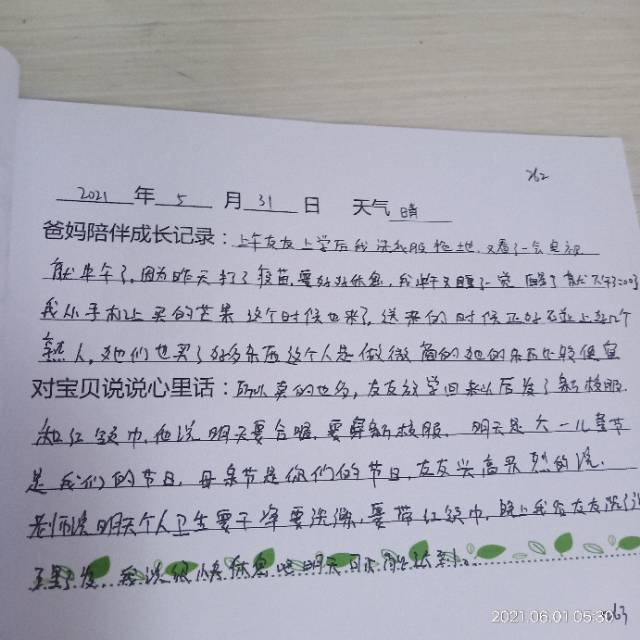 262
2021 年 5 月 31 日 天气 晴
爸妈陪伴成长记录：上午友友上学后我洗衣服拖地，又看了一会电视
就中午了，因为昨天打了疫苗，要好好休息，我中午又睡了一觉 睡 了就下午了
我从手机上买的芒果这个时候也来了，送来的时候正好碰上几个
熟人，她们也买了好多东西这个人是做微商的她的东西比较便宜
对宝贝说说心里话：所以卖的也多，友友放学回来以后发了新校服
和红领巾，他说明天要合唱，要穿新校服，明天是六一儿童节
是我们的节日，母亲节是你们的节日，友友兴高采烈的说。
老师说明天个人卫生要干净要洗澡，要带红领巾，晚上我给友友洗了
头 发，我说很快休息吧明天
2021.06.01 05:30
263